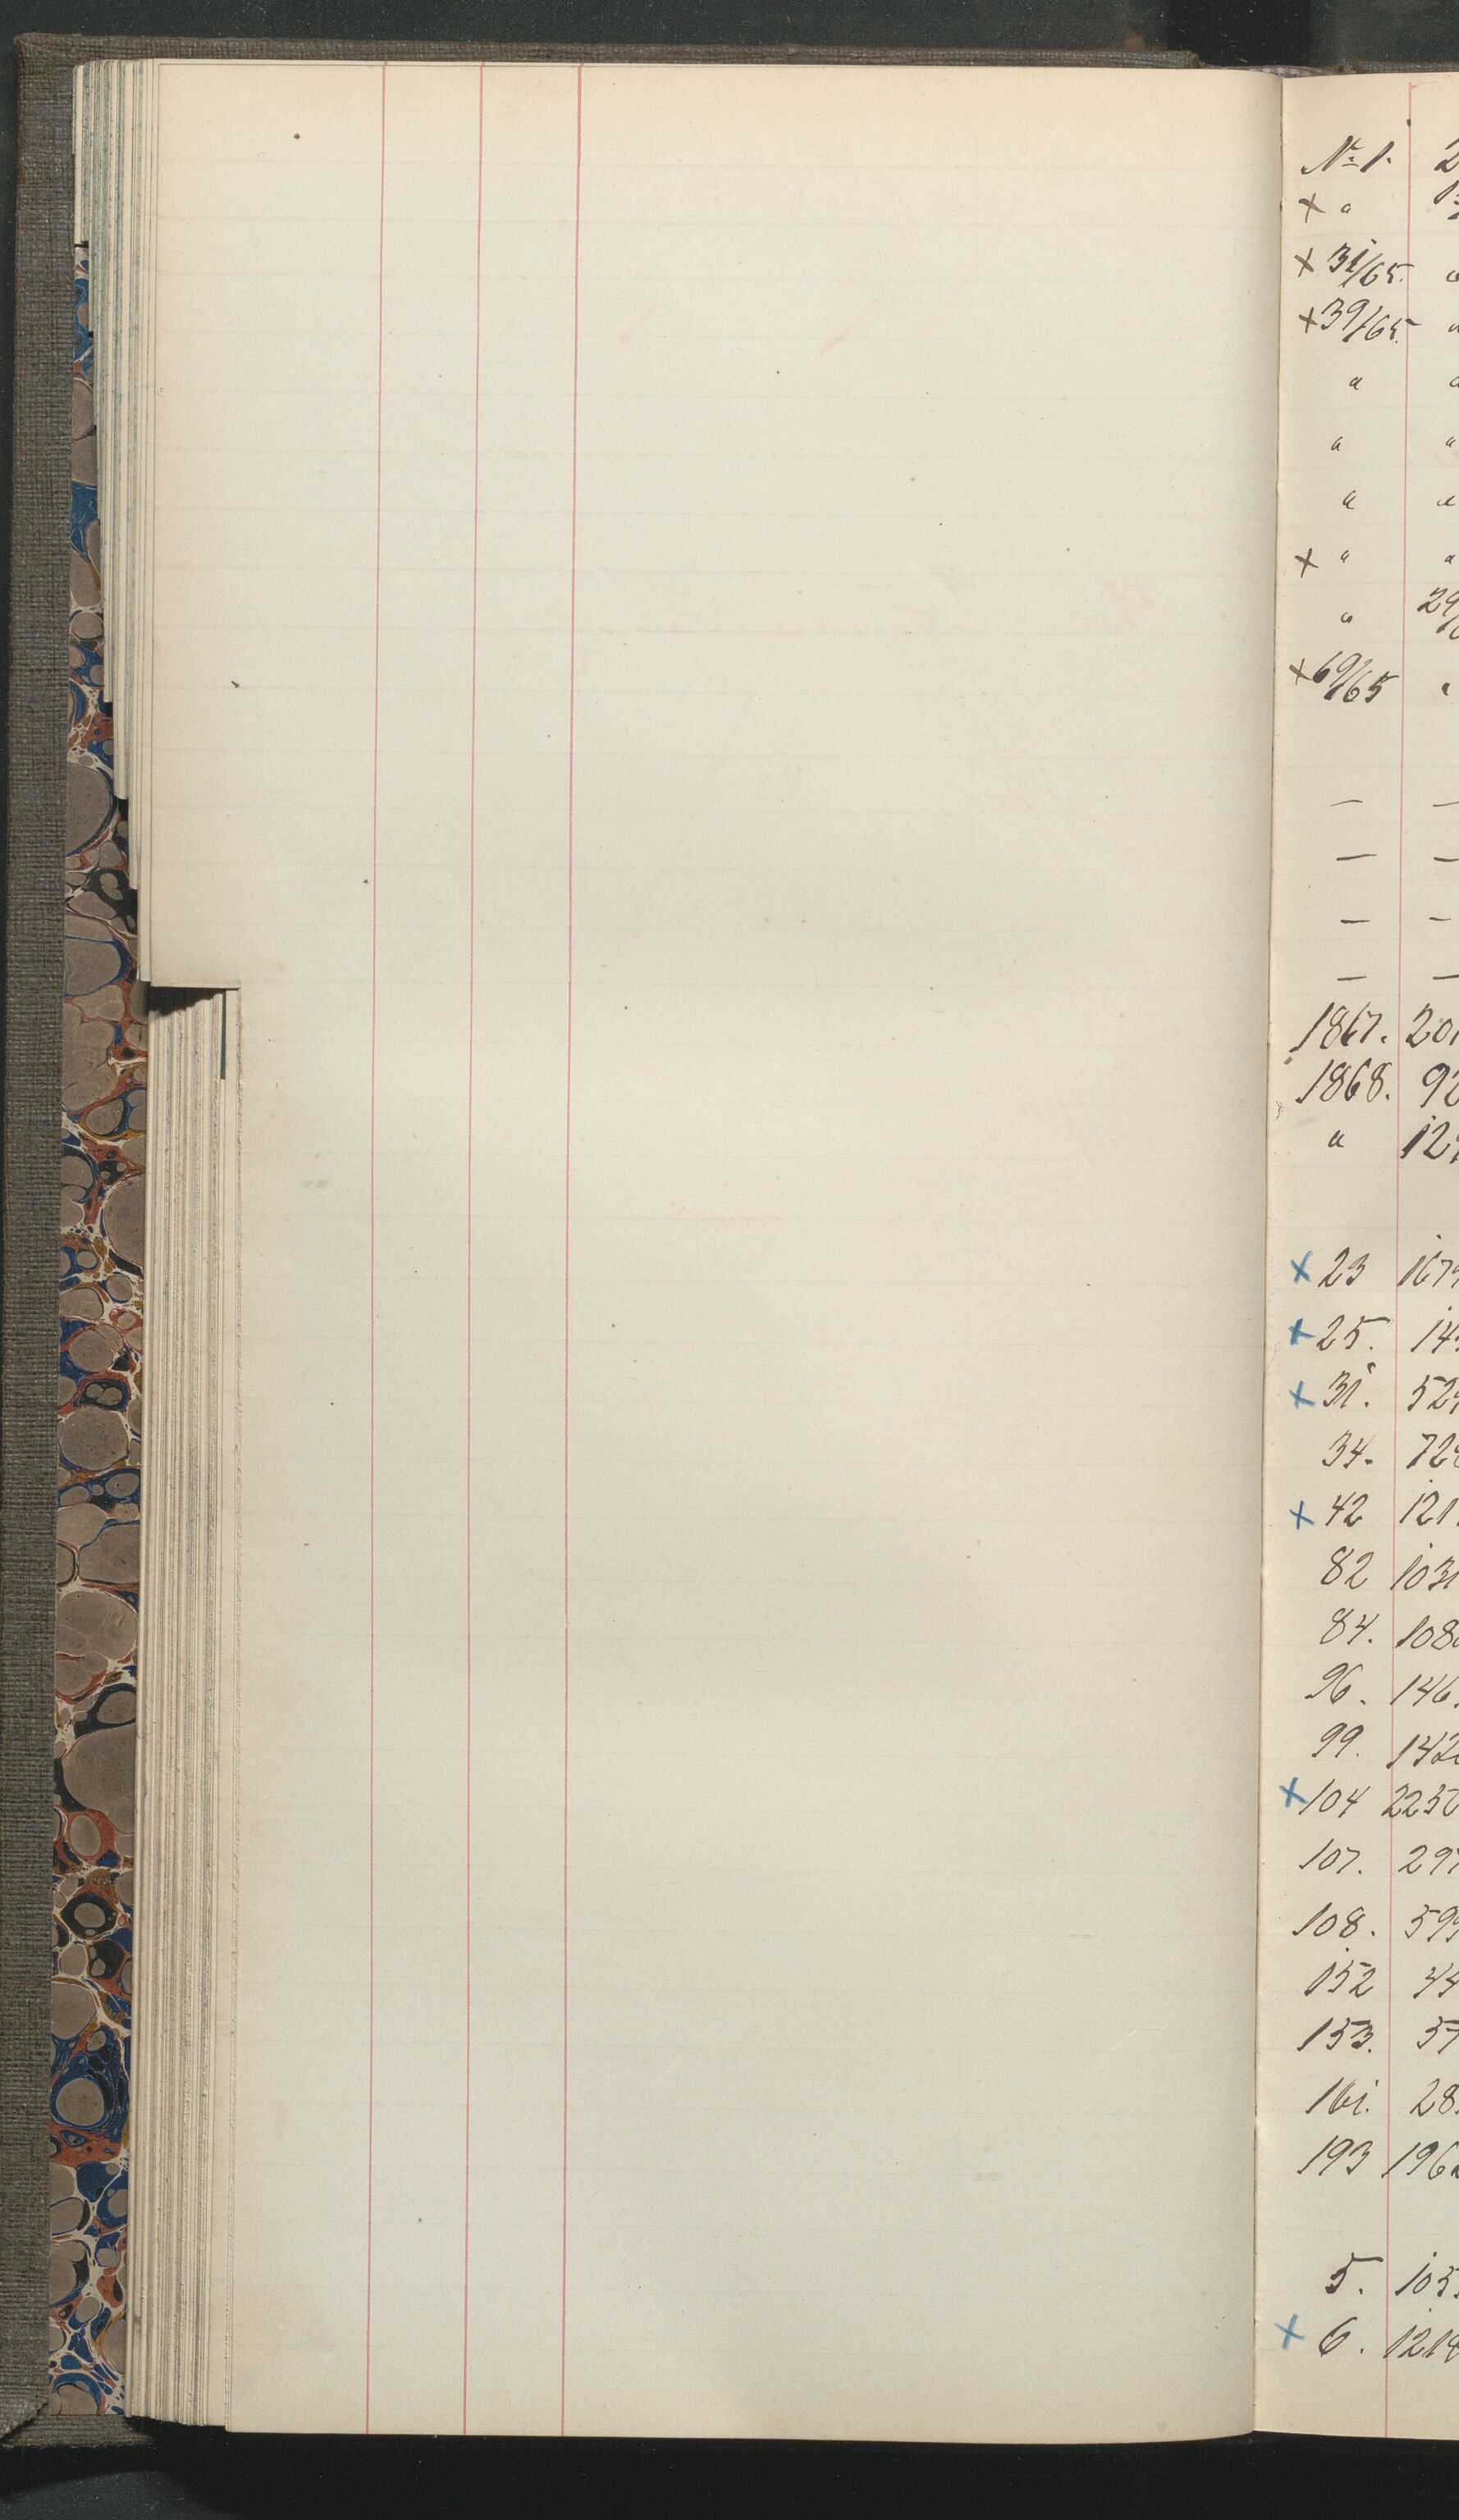 No 1. 2
× "
× 31/65. "
× 39/65. "
" "
" "
" "
× " "
" 29/
× 69/65 "
— —
— —
— —
— —
1867. 201
1868. 92
" 12
× 23 167
× 25. 14
× 31. 52
34. 72
× 42 121
82 103
84. 108
96. 146
99. 142
× 104 2250
107. 297
108. 599
152 44
153. 57
161. 28
193 196
5. 105
× 6. 1218